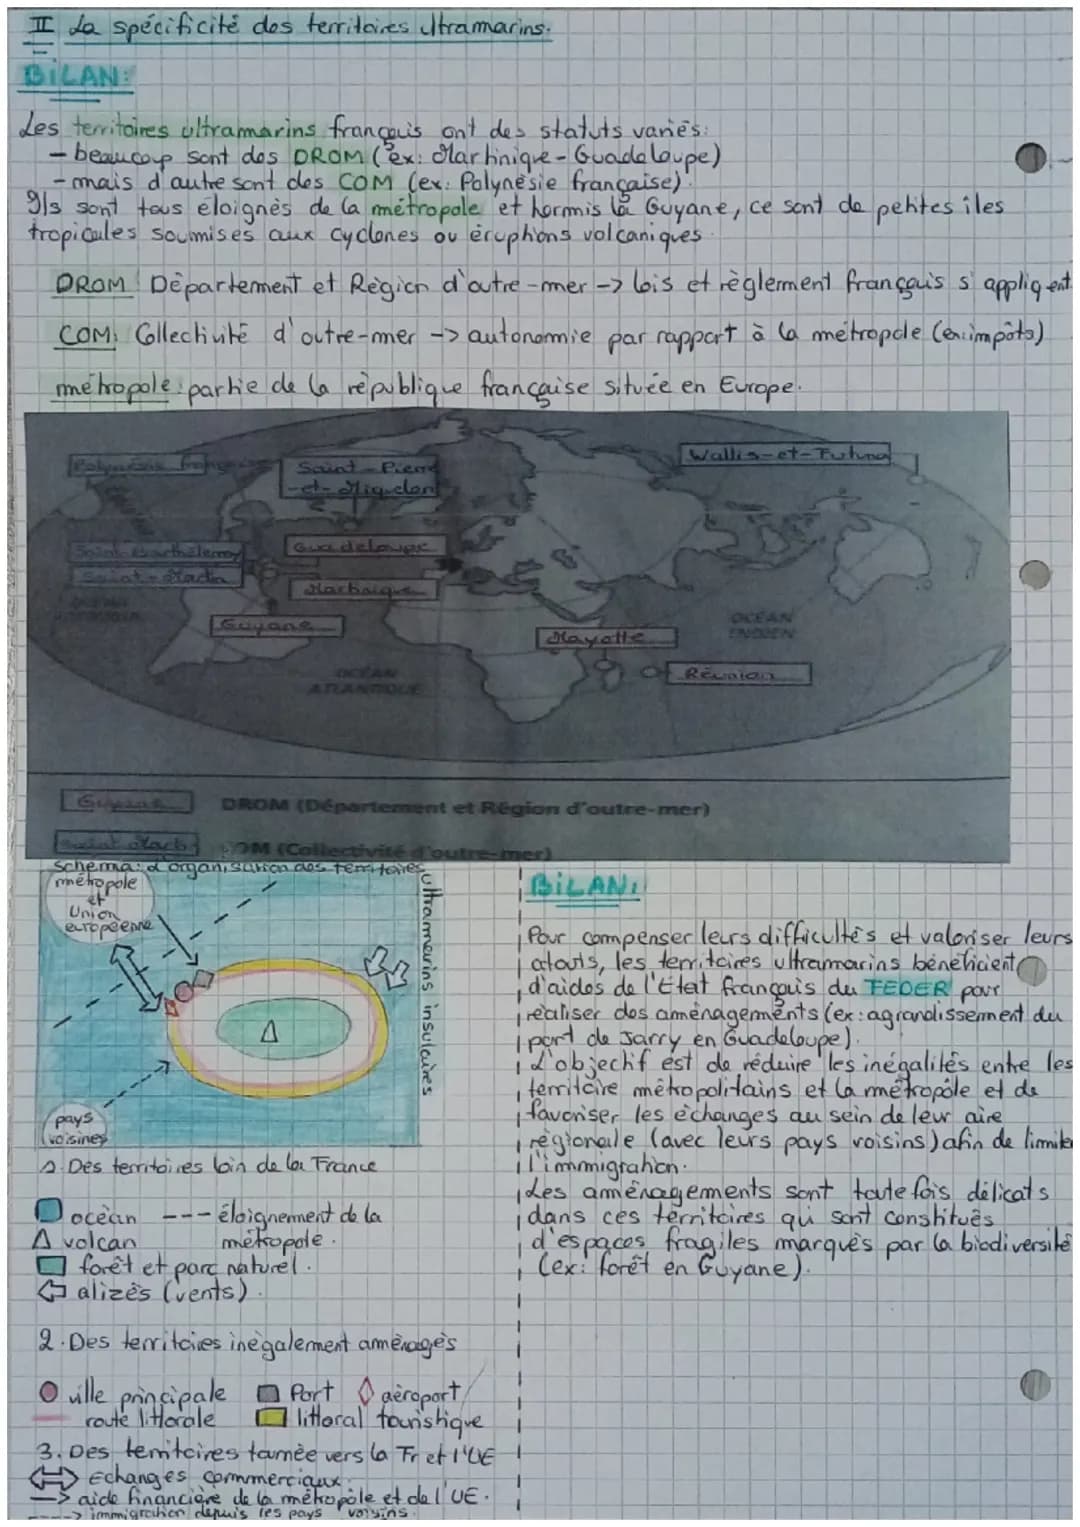 II La spécificité des territoires ultramarins.
BILAN:
Les territoires ultramarins français ont des statuts variés:
- beaucoup sont des DROM (ex: Martinique - Guadeloupe)
- mais d'autre sont des COM (ex: Polynésie française).
Ils sont tous éloignés de la métropole et hormis la Guyane, ce sont de petites îles
tropicales soumises aux cyclones ou éruptions volcaniques.
DROM: Département et Région d'outre-mer -> lois et règlement français s'appliquent
COM: Collectivité d'outre-mer -> autonomie par rapport à la métropole (ex: impôts)
métropole: partie de la république française située en Europe.
Polynésie française
Saint-Pierre
-et-Miquelon
Wallis-et-Futuna
Saint-Barthélemy
Saint-Martin
Guadeloupe
Martinique
Guyane
OCÉAN
ATLANTIQUE
OCÉAN
INDIEN
Mayotte
Réunion
Guyane
DROM (Département et Région d'outre-mer)
Saint-Martin
COM (Collectivité d'outre-mer)
Schéma: d'organisation des territoires
ultramarins insulaires
métropole
et
Union
européenne
pays
voisines
1. Des territoires loin de la France
océan --- éloignement de la
métropole.
volcan
forêt et parc naturel.
alizés (vents).
2. Des territoires inégalement aménagés
ville principale Port aéroport
route littorale littoral touristique
3. Des territoires tournée vers la Fr et l'UE
Echanges commerciaux.
-> aide financière de la métropole et de l'UE.
----> immigration depuis les pays voisins.
BILAN:
Pour compenser leurs difficultés et valoriser leurs
atouts, les territoires ultramarins bénéficient
d'aides de l'Etat français du FEDER pour
réaliser des aménagements (ex: agrandissement du
port de Jarry en Guadeloupe).
L'objectif est de réduire les inégalités entre les
territoire métropolitains et la métropole et de
favoriser les échanges au sein de leur aire
régionale (avec leurs pays voisins) afin de limiter
l'immigration.
Les aménagements sont toutefois délicats
dans ces territoires qui sont constitués
d'espaces fragiles marqués par la biodiversité
(ex: forêt en Guyane).